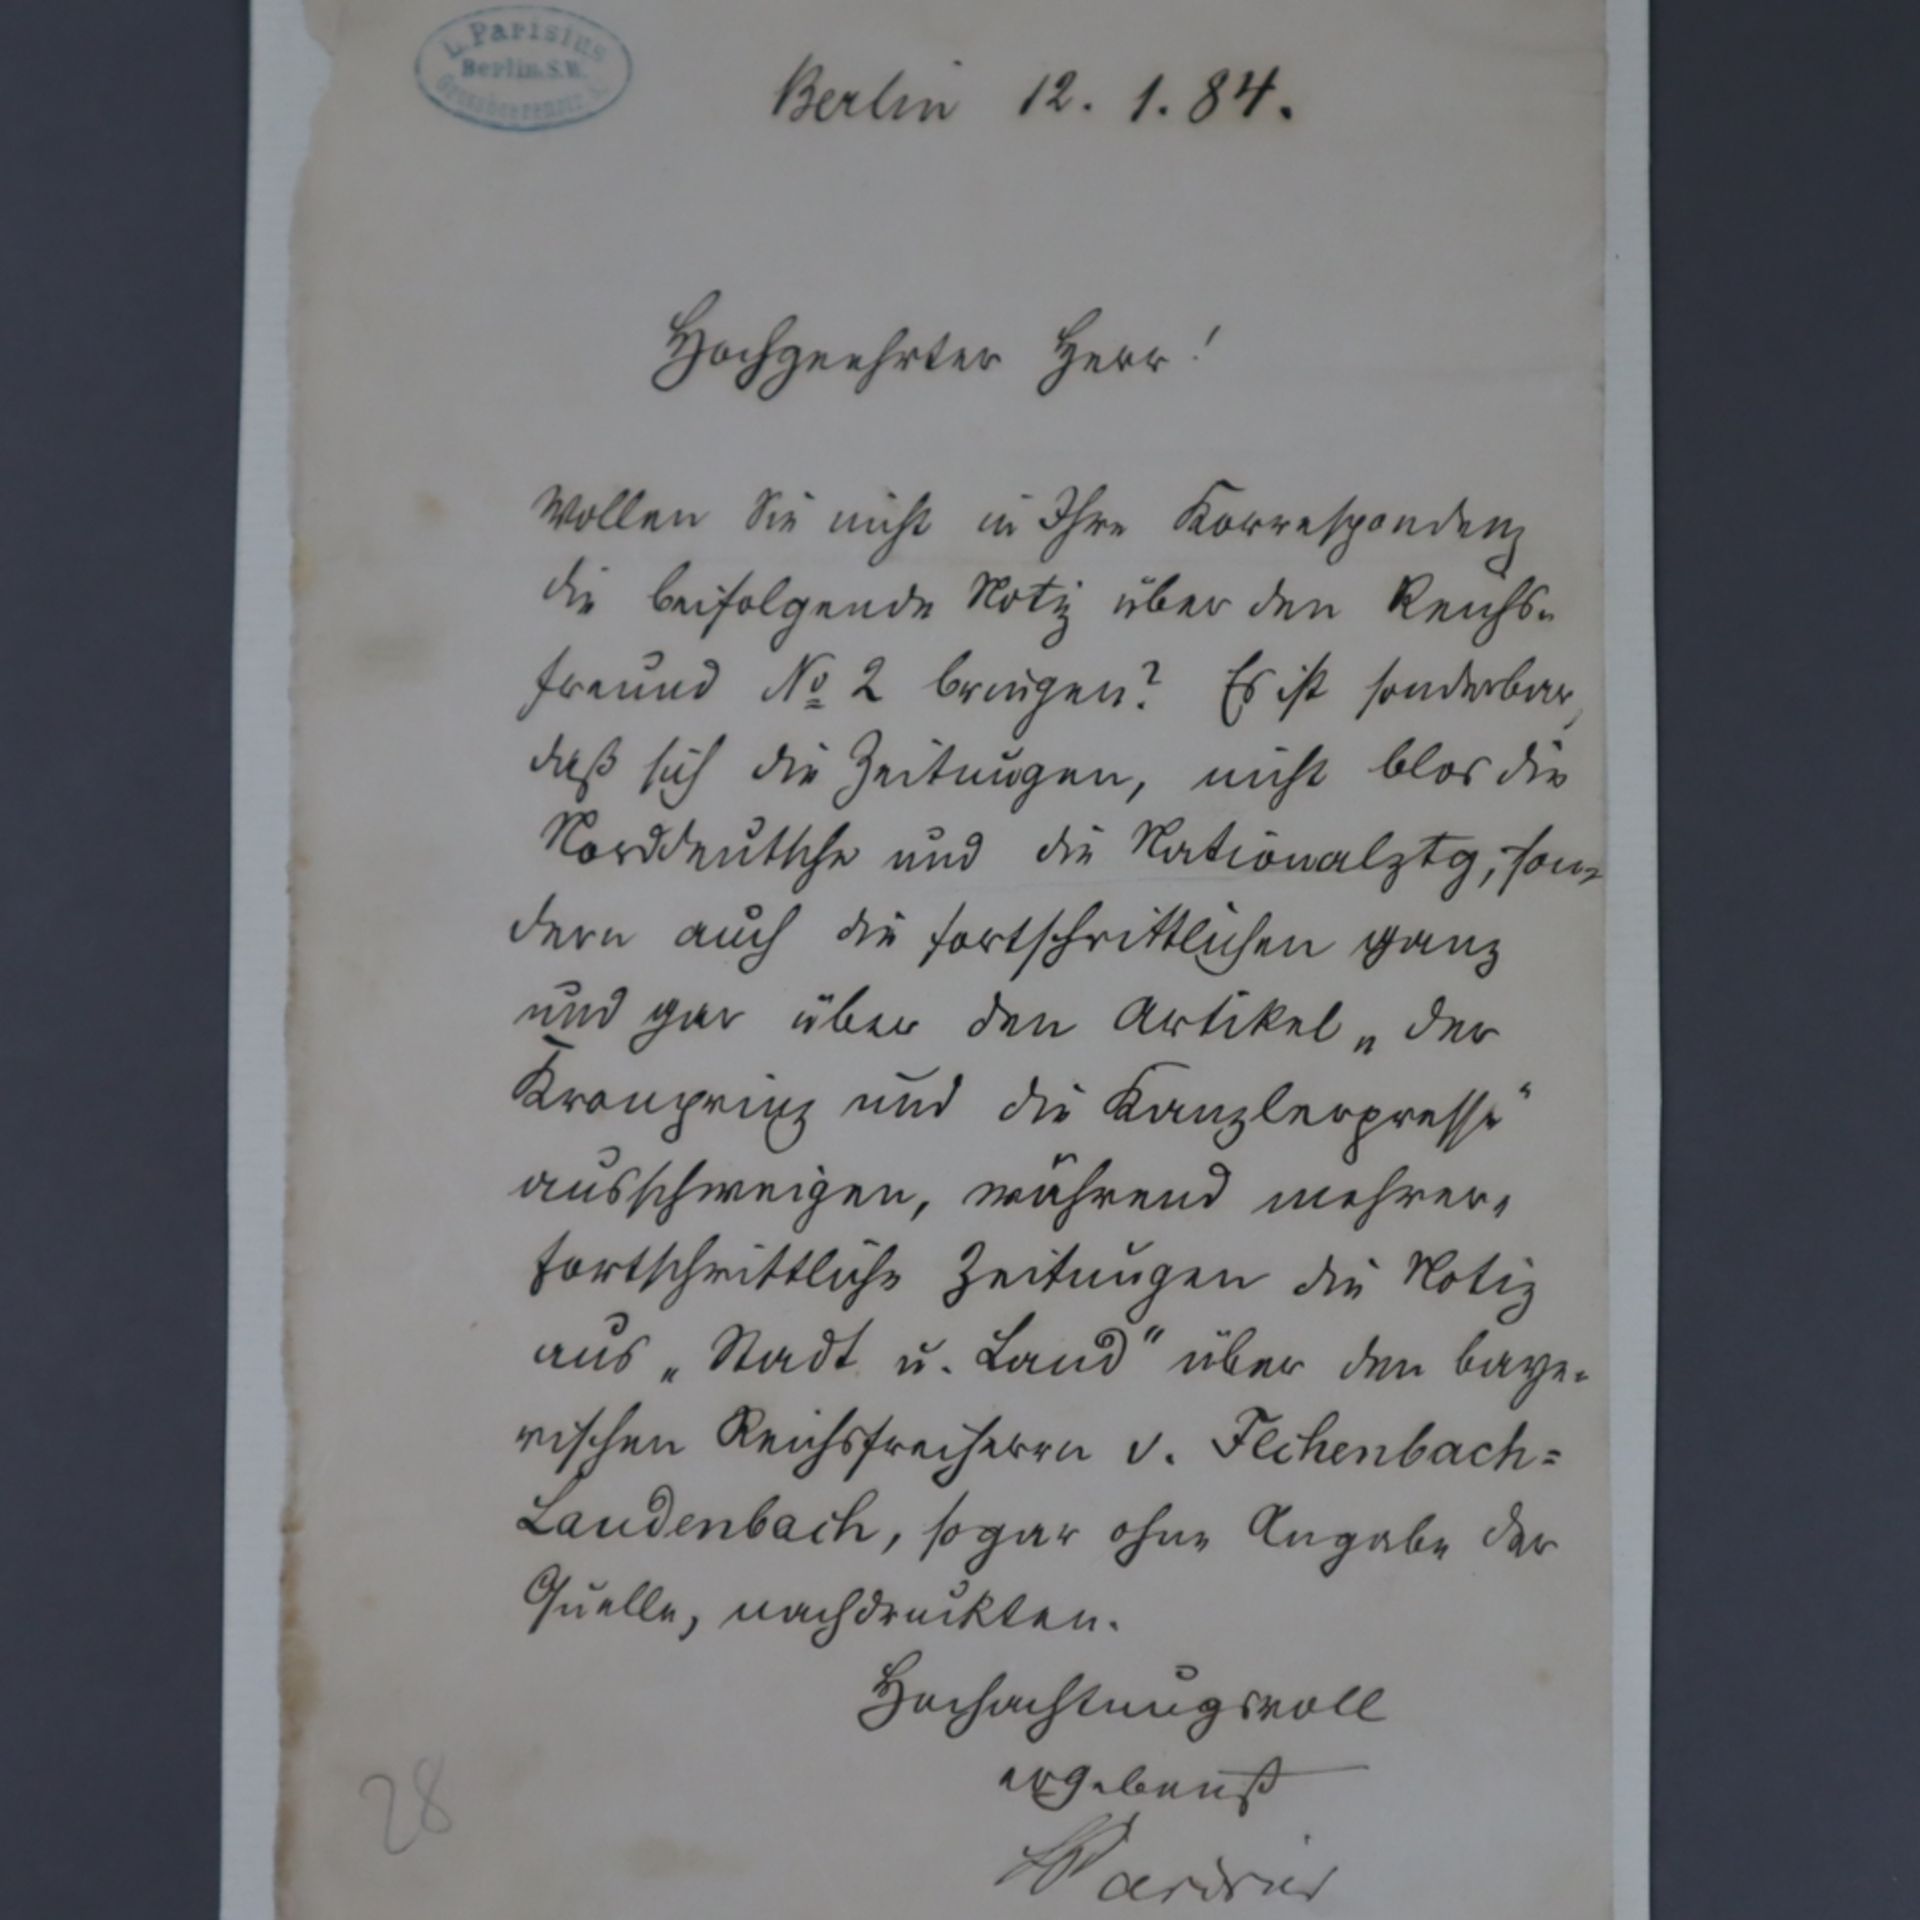 L. Parisius
Berlin. S.W.
Grossbeerenstr.
Berlin 12. 1. 84.
Hochgeehrter Herr!
Wollen Sie nicht in Ihre Korrespondenz
die beifolgende Notiz über den Reichs-
freund No 2 bringen? Es ist sonderbar,
daß sich die Zeitungen, nicht blos die
Norddeutsche und die Nationalztg, son-
dern auch die fortschrittlichen ganz
und gar über den Artikel „der
Kronprinz und die Kanzlerpresse“
ausschweigen, während mehrere
fortschrittliche Zeitungen die Notiz
aus „Stadt u. Land“ über den baye-
rischen Reichsfreiherrn v. Fechenbach-
Laudenbach, sogar ohne Angabe der
Quelle, nachdruckten.
Hochachtungsvoll
ergebenst
LParisius
28